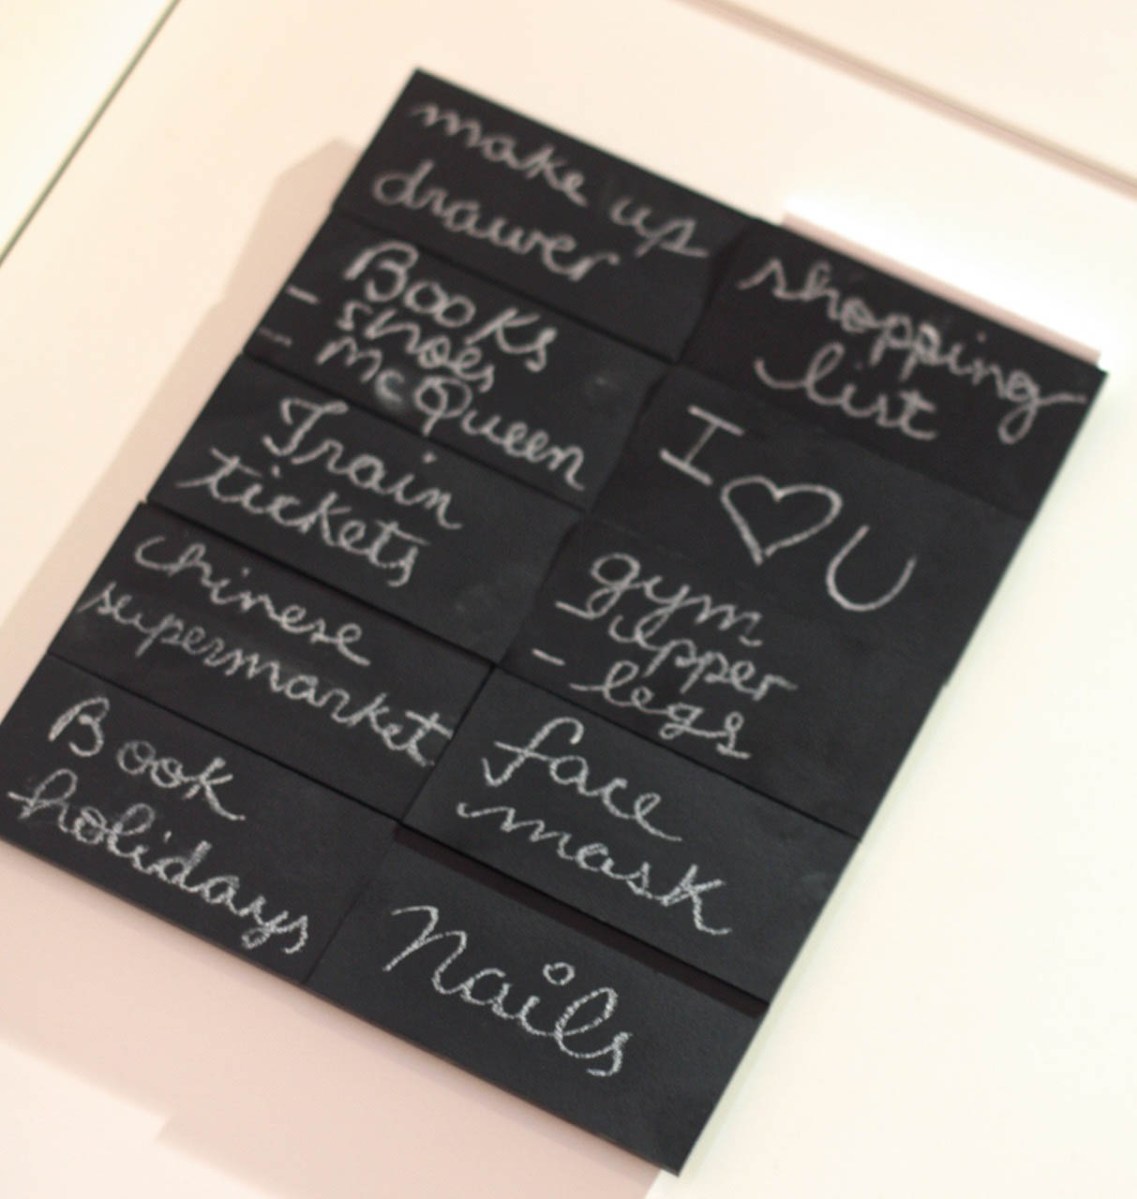 make up
drawer
Books
- shoes
- McQueen
Train
tickets
Chinese
supermarket
Book
holidays
shopping
list
I ♡ U
gym
- upper
- legs
face
mask
Nails